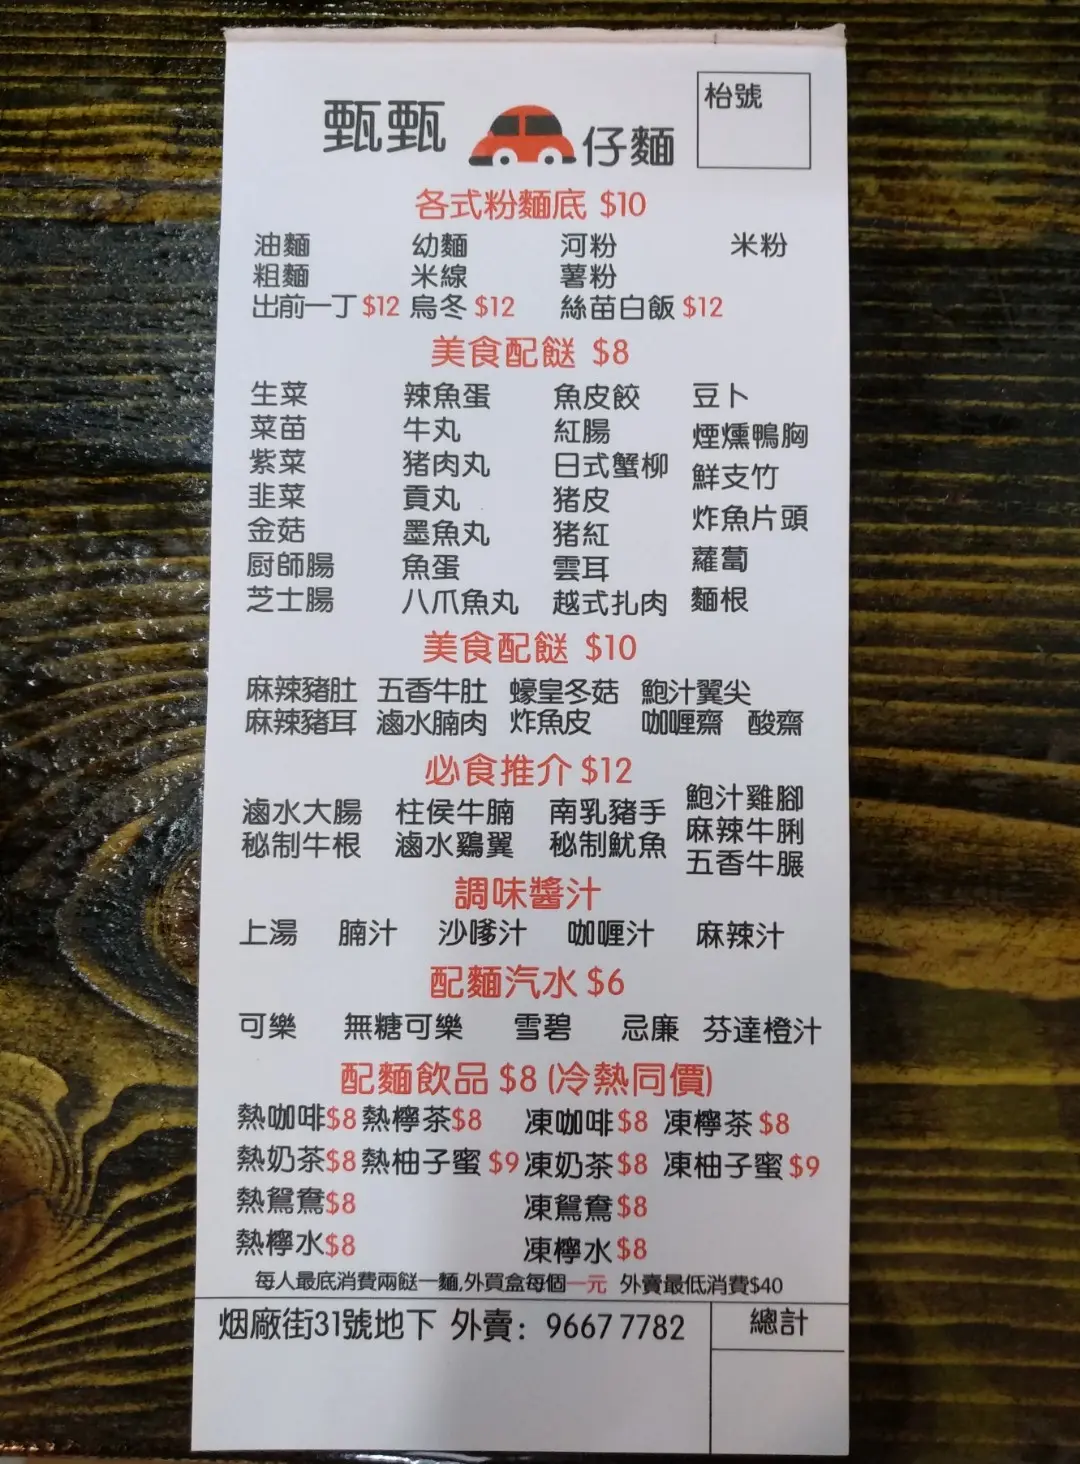 甄甄 仔麵 枱號
各式粉麵底 $10
油麵 幼麵 河粉 米粉
粗麵 米線 薯粉
出前一丁 $12 烏冬 $12 絲苗白飯 $12
美食配餸 $8
生菜 辣魚蛋 魚皮餃 豆卜
菜苗 牛丸 紅腸 煙燻鴨胸
紫菜 猪肉丸 日式蟹柳 鮮支竹
韭菜 貢丸 猪皮 炸魚片頭
金菇 墨魚丸 猪紅 蘿蔔
厨師腸 魚蛋 雲耳 麵根
芝士腸 八爪魚丸 越式扎肉
美食配餸 $10
麻辣豬肚 五香牛肚 蠔皇冬菇 鮑汁翼尖
麻辣豬耳 滷水腩肉 炸魚皮 咖喱齋 酸齋
必食推介 $12
滷水大腸 柱侯牛腩 南乳豬手 鮑汁雞腳
秘制牛根 滷水鷄翼 秘制魷魚 麻辣牛脷
五香牛𦟌
調味醬汁
上湯 腩汁 沙嗲汁 咖喱汁 麻辣汁
配麵汽水 $6
可樂 無糖可樂 雪碧 忌廉 芬達橙汁
配麵飲品 $8 (冷熱同價)
熱咖啡$8 熱檸茶$8 凍咖啡$8 凍檸茶$8
熱奶茶$8 熱柚子蜜$9 凍奶茶$8 凍柚子蜜$9
熱鴛鴦$8 凍鴛鴦$8
熱檸水$8 凍檸水$8
每人最底消費兩餸一麵,外買盒每個一元 外賣最低消費$40
烟廠街31號地下 外賣：9667 7782 總計